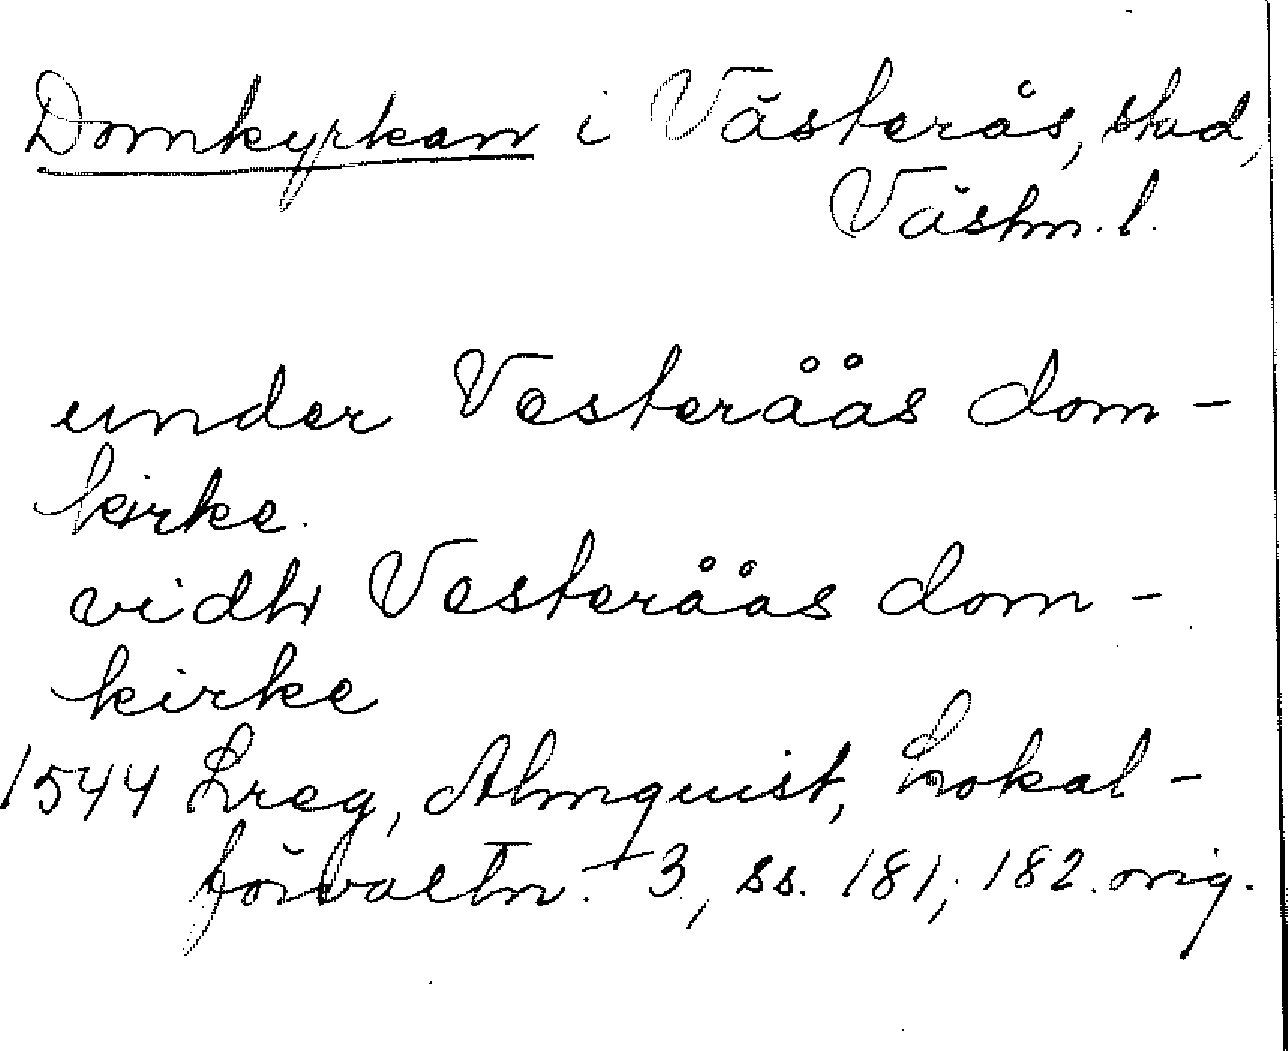 Domkyrkan i Västerås, stad,
Västm. l.
under Vesteråås dom-
kirke.
vidh Vesteråås dom-
kirke
1544 Lreg, Almquist, Lokal-
förvaltn. 3, ss. 181, 182. orig.